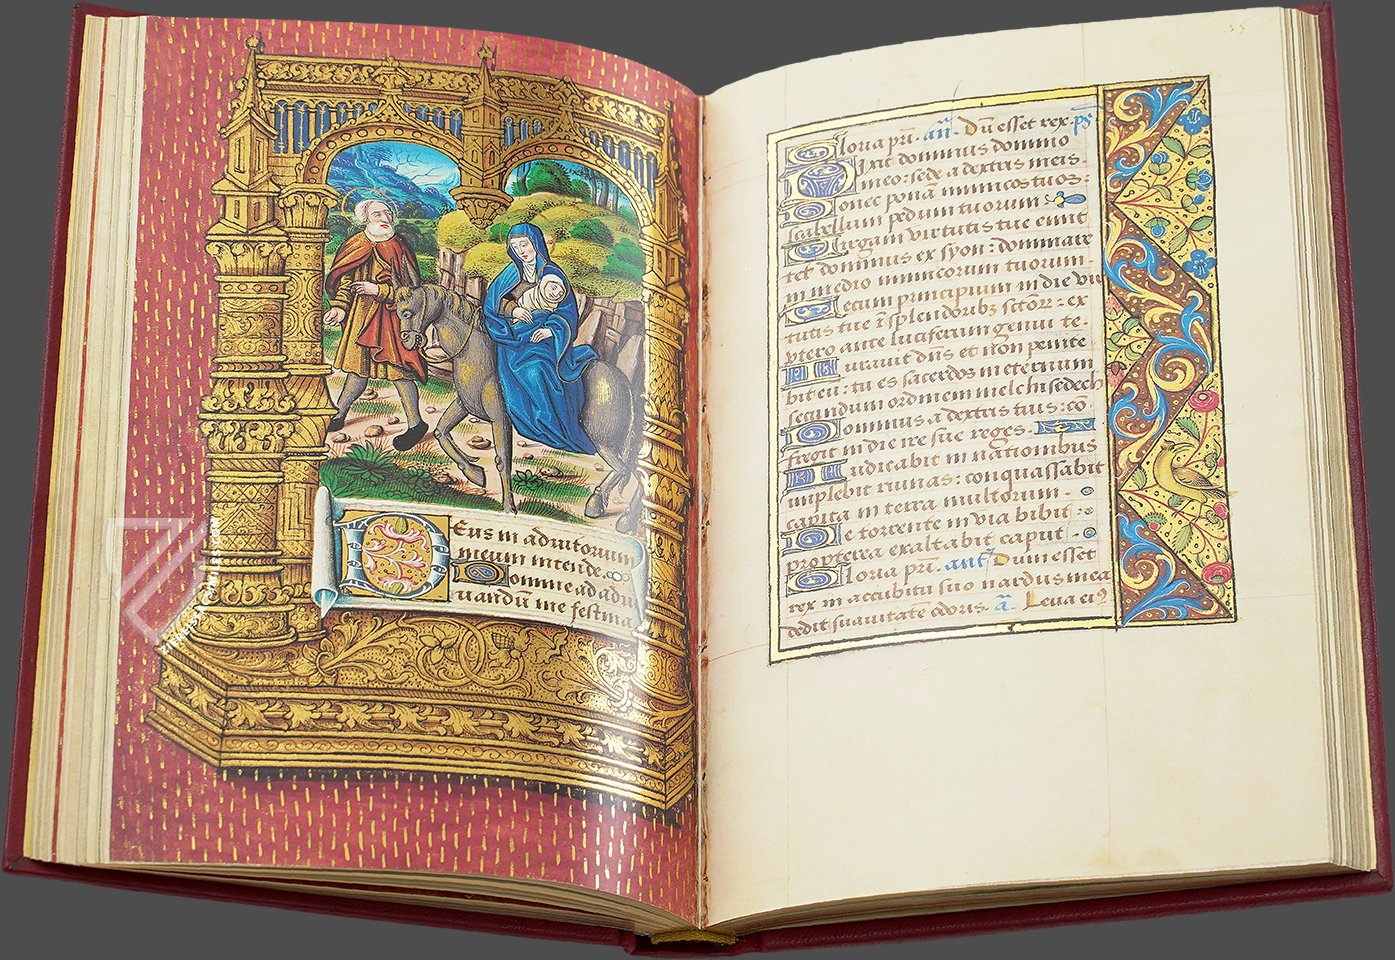 Eus in adiutorium
meum intende.
Domine ad adiu
uandū me festina
55
Gloria pri. añ. Dū esset rex. ps
Dixit dominus domino
meo: sede a dextris meis.
Donec ponā inimicos tuos:
scabellum pedum tuorum
Uirgam virtutis tue emit
tet dominus ex syon: dominare
in medio inimicorum tuorum.
Tecum principium in die vir
tutis tue ī splendoribz sctorr: ex
vtero ante luciferum genui te.
Iurauit dñs et non penite
bit eu: tu es sacerdos in eternum
secundum ordinem melchisedech
Dominus a dextris tuis: cō
fregit in die ire sue reges.
Iudicabit in nationibus
implebit ruinas: conquassabit
capita in terra multorum.
De torrente in via bibit
propterea exaltabit caput
Gloria pri. ant Dum esset
rex in accubitu suo nardus mea
dedit suauitatē odoris. a. Leua eiꝰ